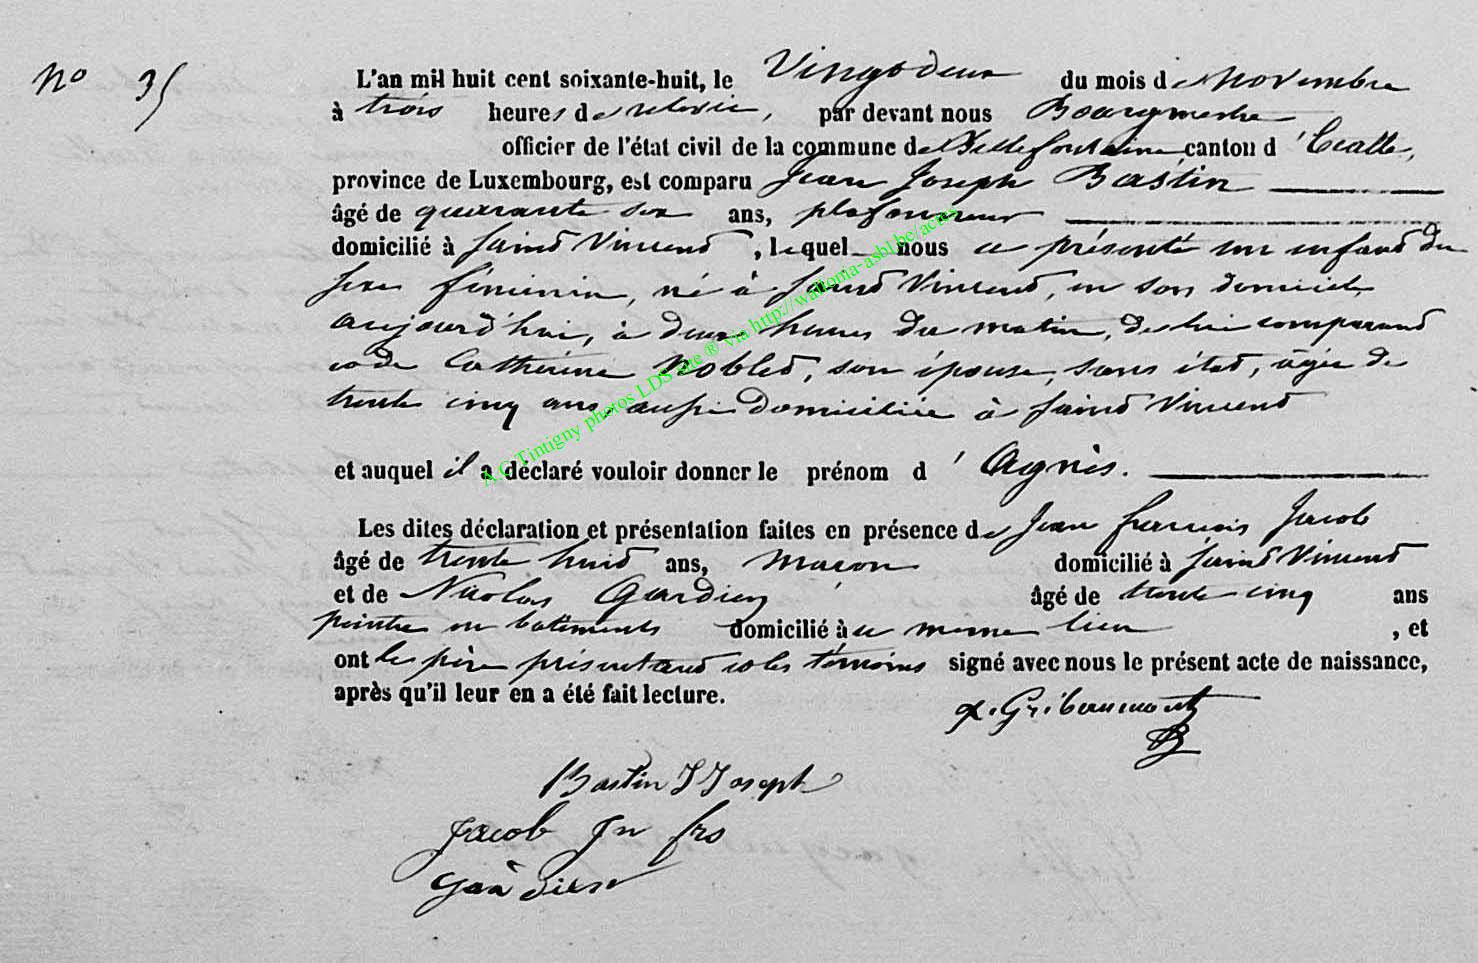 N° 35
L'an mil huit cent soixante-huit, le Vingt deux du mois de Novembre
à trois heures de relevée, par devant nous Bourgmestre
officier de l'état civil de la commune de Bellefontaine, canton d'Etalle,
province de Luxembourg, est comparu Jean Joseph Bastin
âgé de quarante six ans, plafonneur
domicilié à Saint Vincent, lequel nous a présenté un enfant du
sexe féminin, né à Saint Vincent, en son domicile,
aujourd'hui, à deux heures du matin, de lui comparant
et de Catherine Noblet, son épouse, sans état, âgée de
trente cinq ans, aussi domiciliée à Saint Vincent
et auquel il a déclaré vouloir donner le prénom d'Agnès.
Les dites déclaration et présentation faites en présence de Jean françois Jacob
âgé de trente huit ans, maçon domicilié à Saint Vincent
et de Nicolas Gardien âgé de trente cinq ans
peintre en batiments domicilié à u meme lieu, et
ont les père présentant et les témoins signé avec nous le présent acte de naissance,
après qu'il leur en a été fait lecture.
x. Gribaumont
Bastin J Joseph
Jacob Jn frs
A.C Tintigny photos LDS site ® via http://wallonia-asbl.be/actes